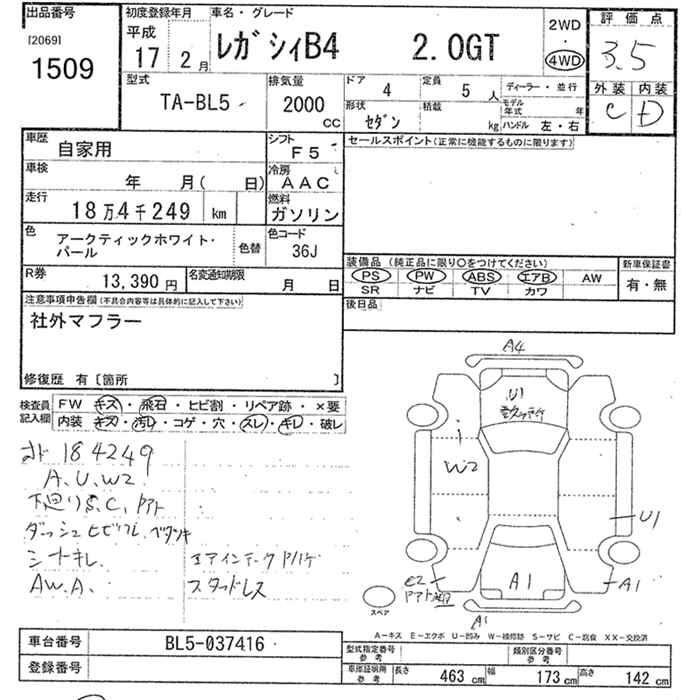 出品番号
[2069]
1509
初度登録年月
平成
17 2月
車名・グレード
レガシィB4 2.0GT
2WD
・
4WD
評価点
3.5
外装 内装
C D
型式
TA-BL5
排気量
2000
CC
ドア
4
定員
5人
ディーラー・並行
形状
セダン
積載
kg
モデル年式
年
ハンドル 左・右
車歴
自家用
シフト
F5
セールスポイント(正常に機能するものに限ります)
車検
年 月( 日)
冷房
AAC
走行
18万4千249 km
燃料
ガソリン
色
アークティックホワイト・
パール
色替
色コード
36J
R券
13,390円
名変通知期限
月 日
装備品(純正品に限り○をつけてください)
PS PW ABS エアB AW
SR ナビ TV カワ
新車保証書
有・無
後日品
注意事項申告欄(不具合内容等は具体的に記入して下さい)
社外マフラー
修復歴 有〔箇所 〕
検査員
記入欄
FW キズ・飛石・ヒビ割・リペア跡・×要
内装 キズ・汚レ・コゲ・穴・スレ・キレ・破レ
184249
A.U.W2
下廻りS.C.
ダッシュヒビワレ.ベタツキ
シートキレ.
A.W.A.
スタッドレス
A4
U1
W2
U1
A1
A1
A1
スペア
A－キズ E－エクボ U－凹み W－補修跡 S－サビ C－腐食 XX－交換済
車台番号
BL5-037416
登録番号
型式指定番号
参考
類別区分番号
参考
車庫証明用
参考
長さ 463 cm
幅 173 cm
高さ 142 cm